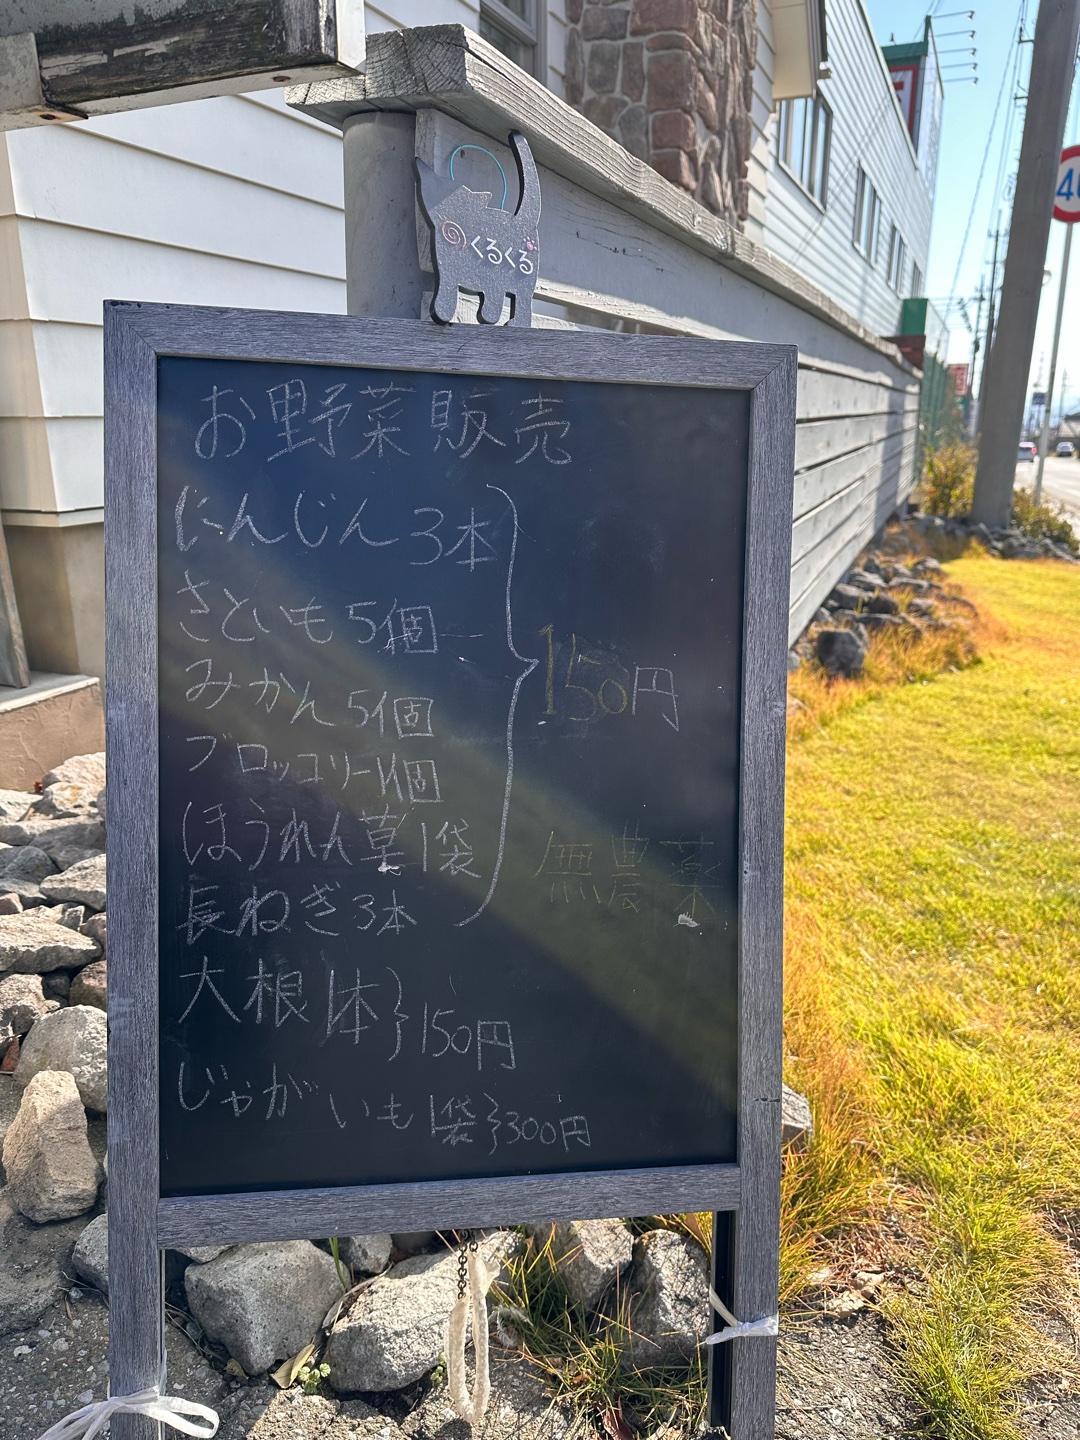 くるくる
お野菜販売
にんじん3本
さといも5個
みかん5個
ブロッコリー1個
ほうれん草1袋
長ねぎ3本
150円
無農薬
大根1本 150円
じゃがいも1袋 300円
40